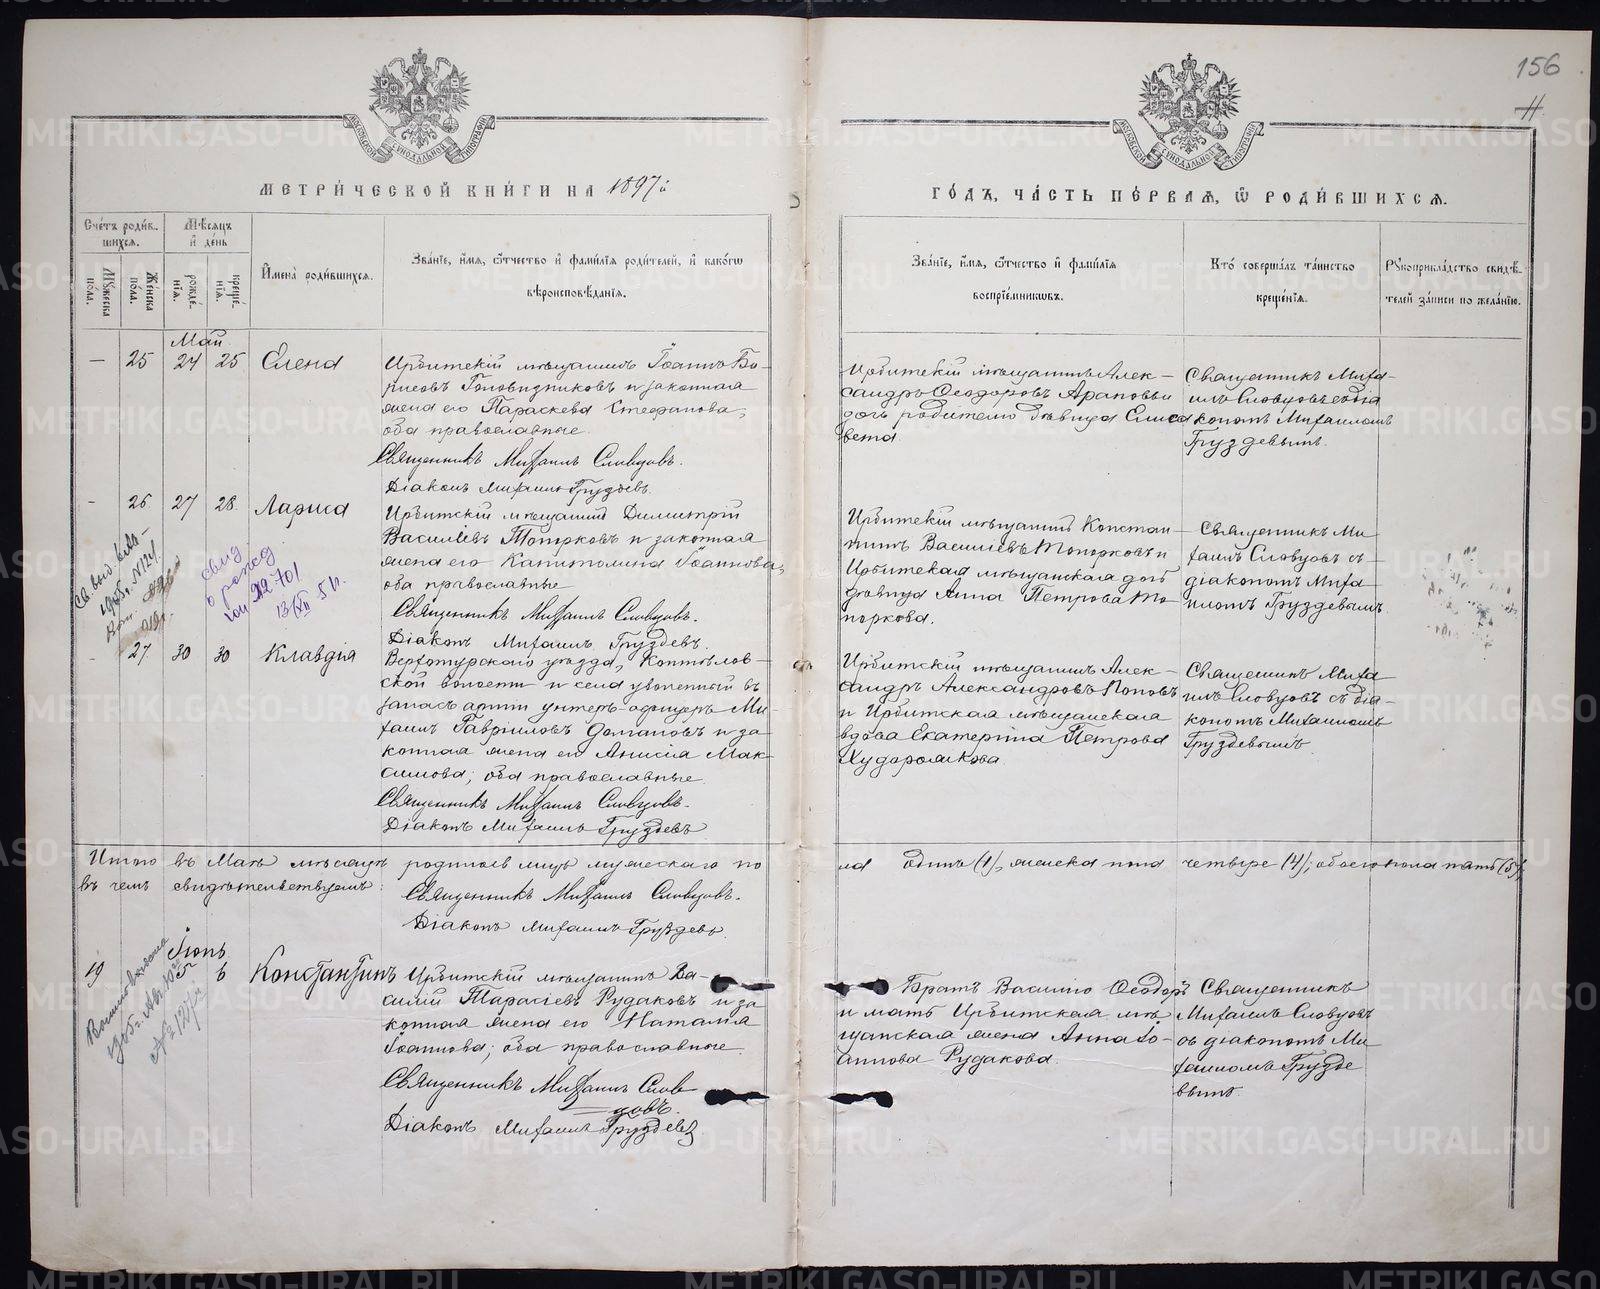 156
11
МОСКОВСКОЙ СѴНОДАЛЬНОЙ ТИПОГРАФІИ
МОСКОВСКОЙ СѴНОДАЛЬНОЙ ТИПОГРАФІИ
МЕТРИ́ЧЕСКОЙ КНИ́ГИ НА 1897й
ГО́ДЪ, ЧА́СТЬ ПЕ́РВАЯ, Ѿ РОДИ́ВШИХСЯ.
Сче́тъ роди́в-
шихся.
Мѣ́сяцъ
и҆ де́нь
Му́жеска
пола.
Же́нска
пола.
рожде́-
нїя.
креще́-
нїя.
И҆мена̀ роди́вшихся.
Зва́нїе, и҆́мя, ѻ҆́тчество и҆ фами́лїя роди́телей, и҆ како́гѡ
вѣроисповѣ́данїя.
Зва́нїе, и҆́мя, ѻ҆́тчество и҆ фами́лїя
воспрїе́мниковъ.
Кто̀ соверша́лъ та́инство
креще́нїя.
Рꙋкоприкла́дство свидѣ́-
телей за́писи по жела́нїю.
Май
— 25 24 25 Елена
Ирбитскій мѣщанинъ Іоаннъ Бо-
рисовъ Головизниковъ и законная
жена его Параскева Стефанова,
оба православные.
Священникъ Михаилъ Словцовъ.
Діаконъ Михаилъ Груздевъ.
Ирбитскій мѣщанинъ Алек-
сандръ Ѳеодоровъ Араповъ и
дочь родителю дѣвица Елиса
вета
Священникъ Миха-
илъ Словцовъ съ діа
кономъ Михаиломъ
Груздевымъ.
- 26 27 28 Лариса
Ирбитскій мѣщанинъ Димитрій
Васильевъ Топорковъ и законная
жена его Капитолина Іоаннова,
оба православные
Священникъ Михаилъ Словцовъ.
Діаконъ Михаилъ Груздевъ.
Ирбитскій мѣщанинъ Констан-
тинъ Васильевъ Топорковъ и
Ирбитская мѣщанская дочь
дѣвица Анна Петрова То-
поркова.
Священникъ Ми-
хаилъ Словцовъ съ
діакономъ Миха-
иломъ Груздевымъ
1905г. №124.
свид
о рожд
№ 701
13/XII 51.
- 27 30 30 Клавдія
Верхотурскаго уѣзда, Коптѣлов-
ской волости и села уволенный въ
запасъ арміи унтеръ-офицеръ Ми-
хаилъ Гавріиловъ Домановъ и за-
конная жена его Анисія Мак-
симова; оба православные
Священникъ Михаилъ Словцовъ.
Діаконъ Михаилъ Груздевъ
Ирбитскій мѣщанинъ Алек-
сандръ Александровъ Поповъ
и Ирбитская мѣщанская
вдова Екатерина Петрова
Худорожкова
Священникъ Миха
илъ Словцовъ съ діа-
кономъ Михаиломъ
Груздевымъ
Итого въ Маѣ мѣсяцѣ родилось лицъ мужескаго по
ла одинъ (1), женска пола четыре (4); обоего пола пять (5);
въ чемъ свидѣтельствуемъ:
Священникъ Михаилъ Словцовъ.
Діаконъ Михаилъ Груздевъ.
Іюнь
19 5 6 Константинъ
Ирбитскій мѣщанинъ Ва-
силій Тарасіевъ Рудаковъ и за-
конная жена его Наталія
Іоаннова; оба православные.
Священникъ Михаилъ Слов
цовъ.
Діаконъ Михаилъ Груздевъ
Братъ Василію Ѳеодоръ
и мать Ирбитская мѣ-
щанская жена Анна Іо-
аннова Рудакова.
Священникъ
Михаилъ Словцовъ
съ діакономъ Ми
хаиломъ Грузде
вымъ.